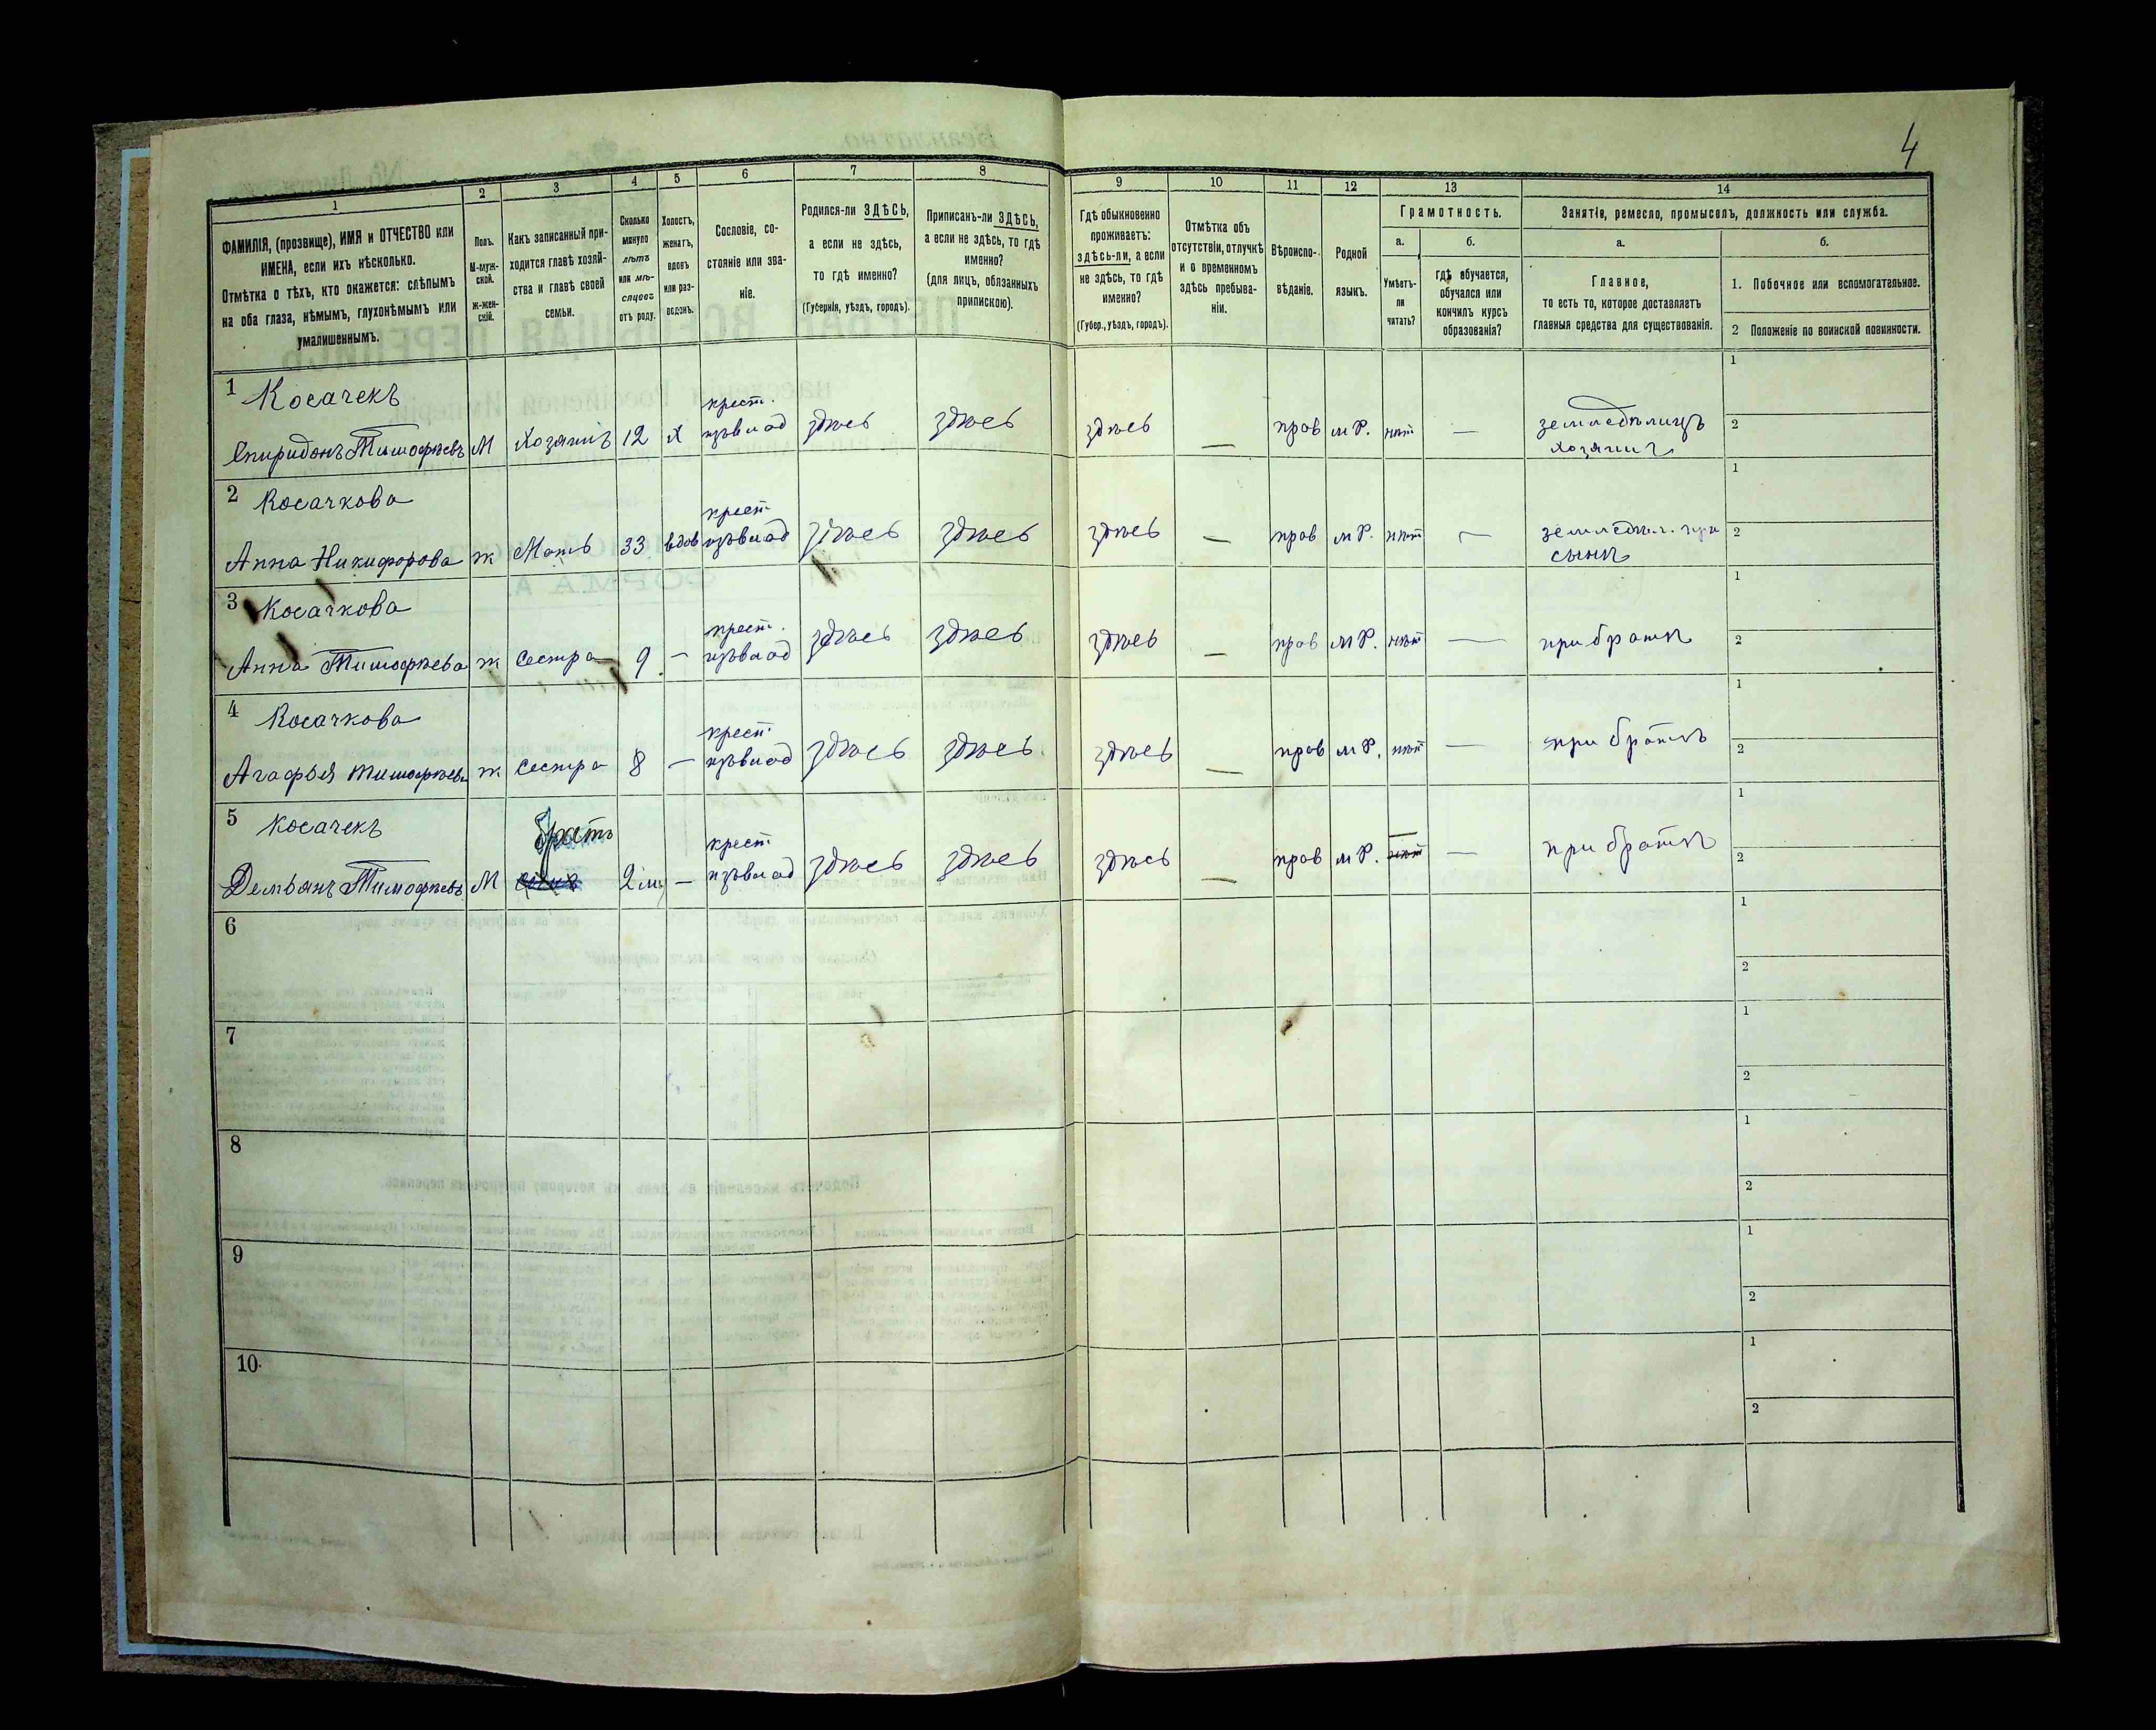 4
1
ФАМИЛІЯ, (прозвище), ИМЯ и ОТЧЕСТВО или
ИМЕНА, если ихъ нѣсколько.
Отмѣтка о тѣхъ, кто окажется: слѣпымъ
на оба глаза, нѣмымъ, глухонѣмымъ или
умалишеннымъ.
2
Полъ.
М-муж-
ской.
Ж-жен-
скій.
3
Какъ записанный при-
ходится главѣ хозяй-
ства и главѣ своей
семьи.
4
Сколько
минуло
лѣтъ
или мѣ-
сяцевъ
отъ роду.
5
Холостъ,
женатъ,
вдовъ
или раз-
веденъ.
6
Сословіе, со-
стояніе или зва-
ніе.
7
Родился-ли ЗДѢСЬ,
а если не здѣсь,
то гдѣ именно?
(Губернія, уѣздъ, городъ).
8
Приписанъ-ли ЗДѢСЬ,
а если не здѣсь, то гдѣ
именно?
(для лицъ, обязанныхъ
припискою).
9
Гдѣ обыкновенно
проживаетъ:
здѣсь-ли, а если
не здѣсь, то гдѣ
именно?
(Губер., уѣздъ, городъ).
10
Отмѣтка объ
отсутствіи, отлучкѣ
и о временномъ
здѣсь пребыва-
ніи.
11
Вѣроиспо-
вѣданіе.
12
Родной
языкъ.
13
Грамотность.
а.
Умѣетъ-
ли
читать?
б.
гдѣ обучается,
обучался или
кончилъ курсъ
образованія?
14
Занятіе, ремесло, промыселъ, должность или служба.
а.
Главное,
то есть то, которое доставляетъ
главныя средства для существованія.
б.
1. Побочное или вспомогательное.
2 Положеніе по воинской повинности.
1 Косачекъ
Спиридонъ Тимофѣевъ М Хозяинъ 12 Х крест. изъ влад здѣсь здѣсь здѣсь — пров м Р. нѣт — землеѣделецъ хозяинъ 1 2
2 Косачкова
Анна Никифорова ж Мать 33 вдов крест изъ влад здѣсь здѣсь здѣсь — пров м Р. нѣт — при сынѣ 1 2
3 Косачкова
Анна Тимофѣева ж сестра 9 — крест. изъ влад здѣсь здѣсь здѣсь — пров м Р. нѣт — при братѣ 1 2
4 Косачкова
Агафья Тимофѣева ж сестра 8 — крест изъ влад здѣсь здѣсь здѣсь — пров м Р. нѣт — при братѣ 1 2
5 Косачекъ
Демьянъ Тимофѣевъ М братъ 2 м — крест изъ влад здѣсь здѣсь здѣсь — пров м Р. — — при братѣ 1 2
6 1 2
7 1 2
8 1 2
9 1 2
10 1 2